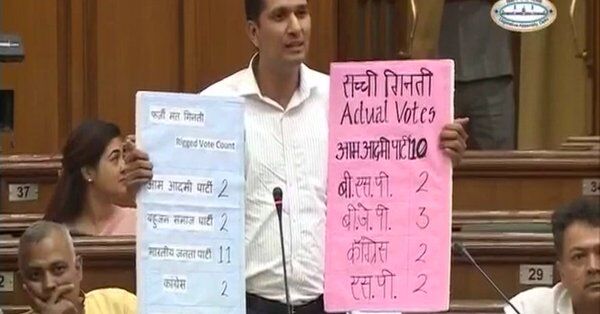 फर्ज़ी मत गिनती
Rigged Vote Count
आम आदमी पार्टी 2
बहुजन समाज पार्टी 2
भारतीय जनता पार्टी 11
कांग्रेस 2
सच्ची गिनती
Actual Votes
आम आदमी पार्टी 10
बी.एस.पी. 2
बी.जे.पी. 3
कॉंग्रेस 2
एस.पी. 2
37
34
29